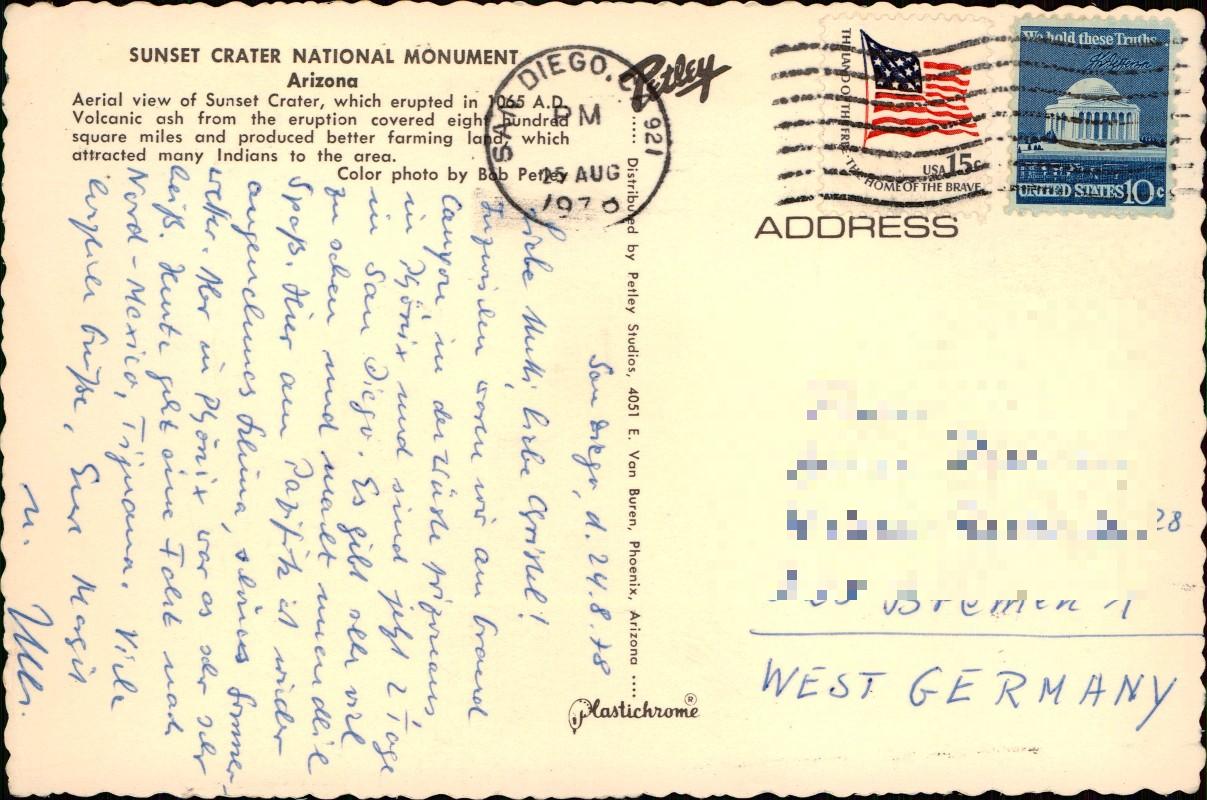 SUNSET CRATER NATIONAL MONUMENT
Arizona
Aerial view of Sunset Crater, which erupted in 1065 A.D.
Volcanic ash from the eruption covered eight hundred
square miles and produced better farming land, which
attracted many Indians to the area.
Color photo by Bob Petley
Petley
SAN DIEGO, C 921
PM
25 AUG
1978
THE LAND OF THE FREE · THE HOME OF THE BRAVE
USA 15c
We hold these Truths
UNITED STATES 10c
ADDRESS
.... Distributed by Petley Studios, 4051 E. Van Buren, Phoenix, Arizona ....
Plastichrome ®
San Diego, d. 24.8.78
Liebe Mutti, liebe Christel!
Inzwischen waren wir am Grand
Canyon in der Wüste Arizonas
in Phönix und sind jetzt 2 Tage
in San Diego. Es gibt sehr viel
zu sehen und macht unendlich
Spaß. Hier am Pazifik ist wieder
angenehmes Klima, schönes Sommer-
wetter. Aber in Phönix war es sehr sehr
heiß. Heute geht eine Fahrt nach
Nord-Mexico, Tijuana. Viele
herzliche Grüße, Eure Margit
u.
28
Bremen 1
WEST GERMANY